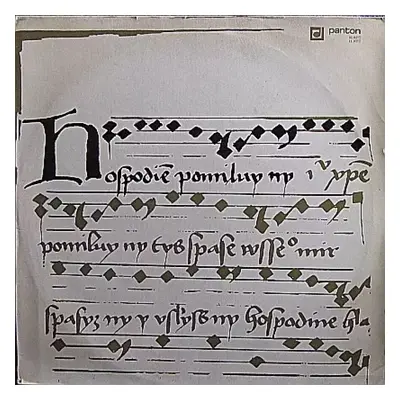 panton
Hospodiē pomiluy ny iᵛ xpē
pomiluy ny tys spase wsseᵒ mir
spasyz ny y uslyss ny hospodine hla